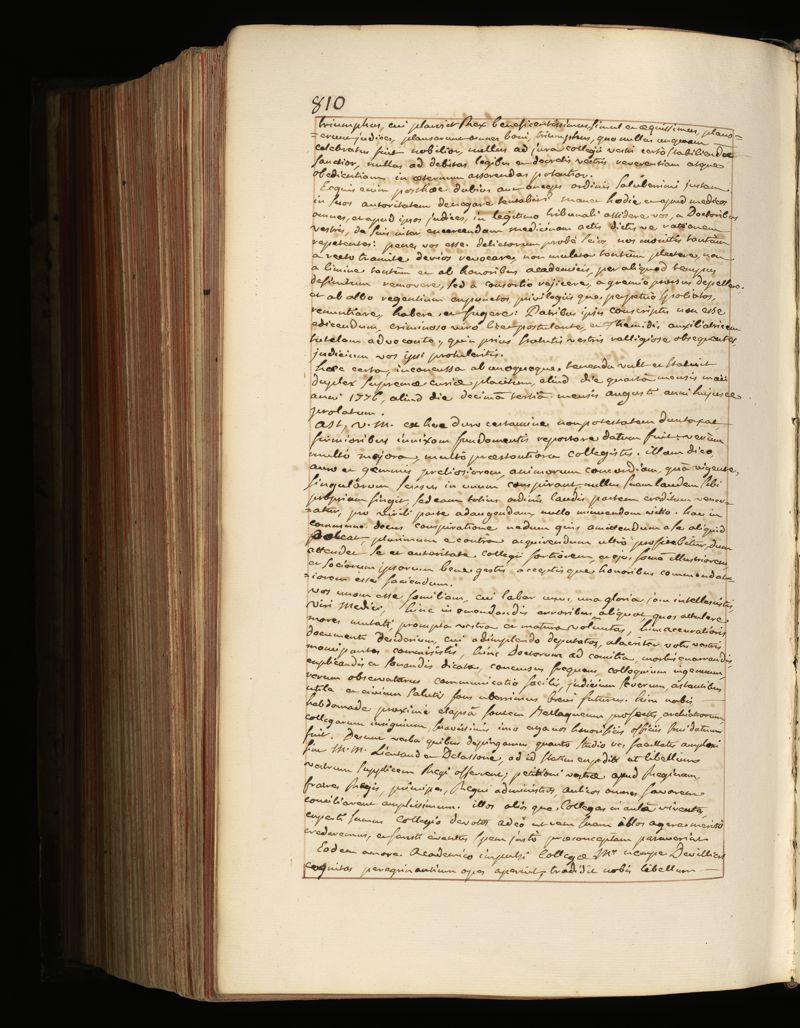 810
triumphus, cui plausit Rex beneficentissimus, simul et æquissimus, plaus=
=erunt judices, plauserunt omnes boni, triumphus, quo nullus unquam
celebratus fuit nobilior, nullus ad jura collegii vestri certò stabilienda
sanctior, nullus ad debitas legibus et decretis vestris reverentiam atque
obedientiam in æternum asserendas potentior.
Ecquis enim posthac dubius aut anceps ordinis saluberrimi justam
in suos autoritatem denegare tentabit? manet hodie et apud medicos
omnes, et apud ipsos judices, in legitimo tribunali assidere vos, a Doctoribus
vestris, de suis inter exercendam medicinam actis dictis ve rationem
repetentes: penes vos esse delictorum probè scios, nos monitis tantùm
a recto tramite devios revocare, non mulcta tantùm plectere, non
a limine tantùm et ab honoribus academicis, per aliquod tempus
definitum removere, sed a consortio rejicere, a gremio prorsus depellere,
et ab albo regentium expunctos, privilegiis que perpetuò spoliatos,
renuntiare, habere et fugere: Patribus ipsis conscriptis non esse
edicendum, criminoso viro licet postulante, et Themidis auxiliatricem
tutelam advocante, quin prius statutis vestris religiose obsequentes
judicium vos ipsi protuleritis.
hæc certa, inconcussa ab unoquoque tenenda vult et statuit
duplex supremæ curiæ placitum, aliud die quartâ mensis maii
anni 1776, aliud die decimâ tertiâ mensis augusti anni hujusce
prolatum.
Ast, V. M. ex hoc duro certamine non potestatem duntaxat
firmioribus innixam fundamentis reportare datum fuit, verùm
multò majora, multò præstantiora collegistis. illam dico
auro et gemmis pretiosiorem, animorum concordiam, quâ vigente,
singulorum sensus in unum conspirant, nullus suam laudem sibi
propriam fingit, sed eam totius ordinis laudis partem creditam vener=
=atur, pro virili parte adaugendam, nullo minuendam vitio. hac in
commune decus conspiratione nedum quis amittendum a se aliquid
putat, plurimum e contra acquirendum ultrò profitebitur, dum
attendet se et autoritate collegii fortiorem, et ejus famâ illustriorem,
et sociorum ipsorum bene gestis acceptis que honoribus commendat=
=iorem esse faciendum.
vos unam esse familiam, cui labor unus, una gloria jam intellexistis,
viri Medici, hinc in emendandis erroribus aliquot, quos attulere
mores mutati, prompta vestra et matura voluntas, hinc accurationis
documenti desiderium, cui adimplendo deputatos, alacriter votis vestris
mancipantes commisistis, hinc Doctorum ad comitia, morbis enarrandis,
explicandis et sanandis dicata, concursus frequens, colloquium ingenuum,
rerum observatarum communicatio facilis, judicium severum, astantibus
utile et civium saluti fons uberrimus brevi futurus. hinc nobis
hebdomade proximè elapsâ fontem Bellaqueum profectis, archiatrorum
collegarum insignium suavissimis imò erga nos honorificis officiis frui datum
fuit. Desunt verba quibus depingamus quanto studio vos, facultatis amplexi
sint M. M. Lieutaud et Delassone, ad id statim expediti ut libellum
vestrum supplicem Regi offerrent; petitioni vestræ apud Reginam,
fratres Regis, principes, Regni administros, aulicos omnes favorem
conciliarent amplissimum. illos aliis que Collegas in aulâ viventes,
experti sumus Collegio devotos adeo ut rem suam illos agere meritò
crederemus, et fausti eventus spem justò præconceptam paraverint.
Eodem amore Academico impulsi Collegæ Mr. nempe Devilliers
exquisitas peregrinantium opes aperiens, tradidit nobis libellum